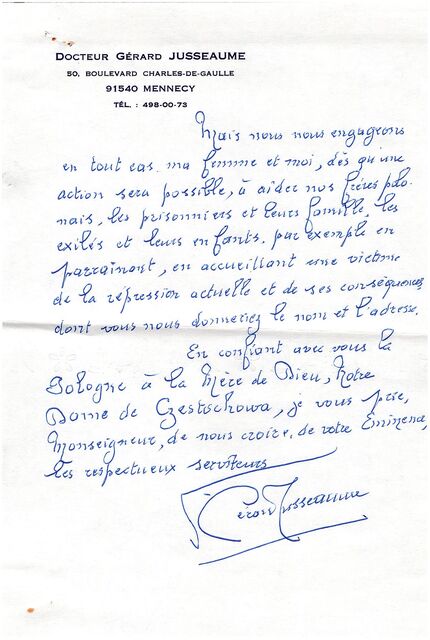 DOCTEUR GÉRARD JUSSEAUME
50, BOULEVARD CHARLES-DE-GAULLE
91540 MENNECY
TÉL. : 498-00-73
Mais nous nous engageons
en tout cas ma femme et moi, dès qu'une
action sera possible, à aider nos frères polo-
nais, les prisonniers et leurs famille, les
exilés et leurs enfants. par exemple en
parrainant, en accueillant une victime
de la répression actuelle et de ses conséquences
dont vous nous donneriez le nom et l'adresse.
En confiant avec vous la
Pologne à la Mère de Dieu, Notre
Dame de Czestschowa, je vous prie,
Monseigneur, de nous croire, de votre Éminence,
les respectueux serviteurs
Gérard Jusseaume